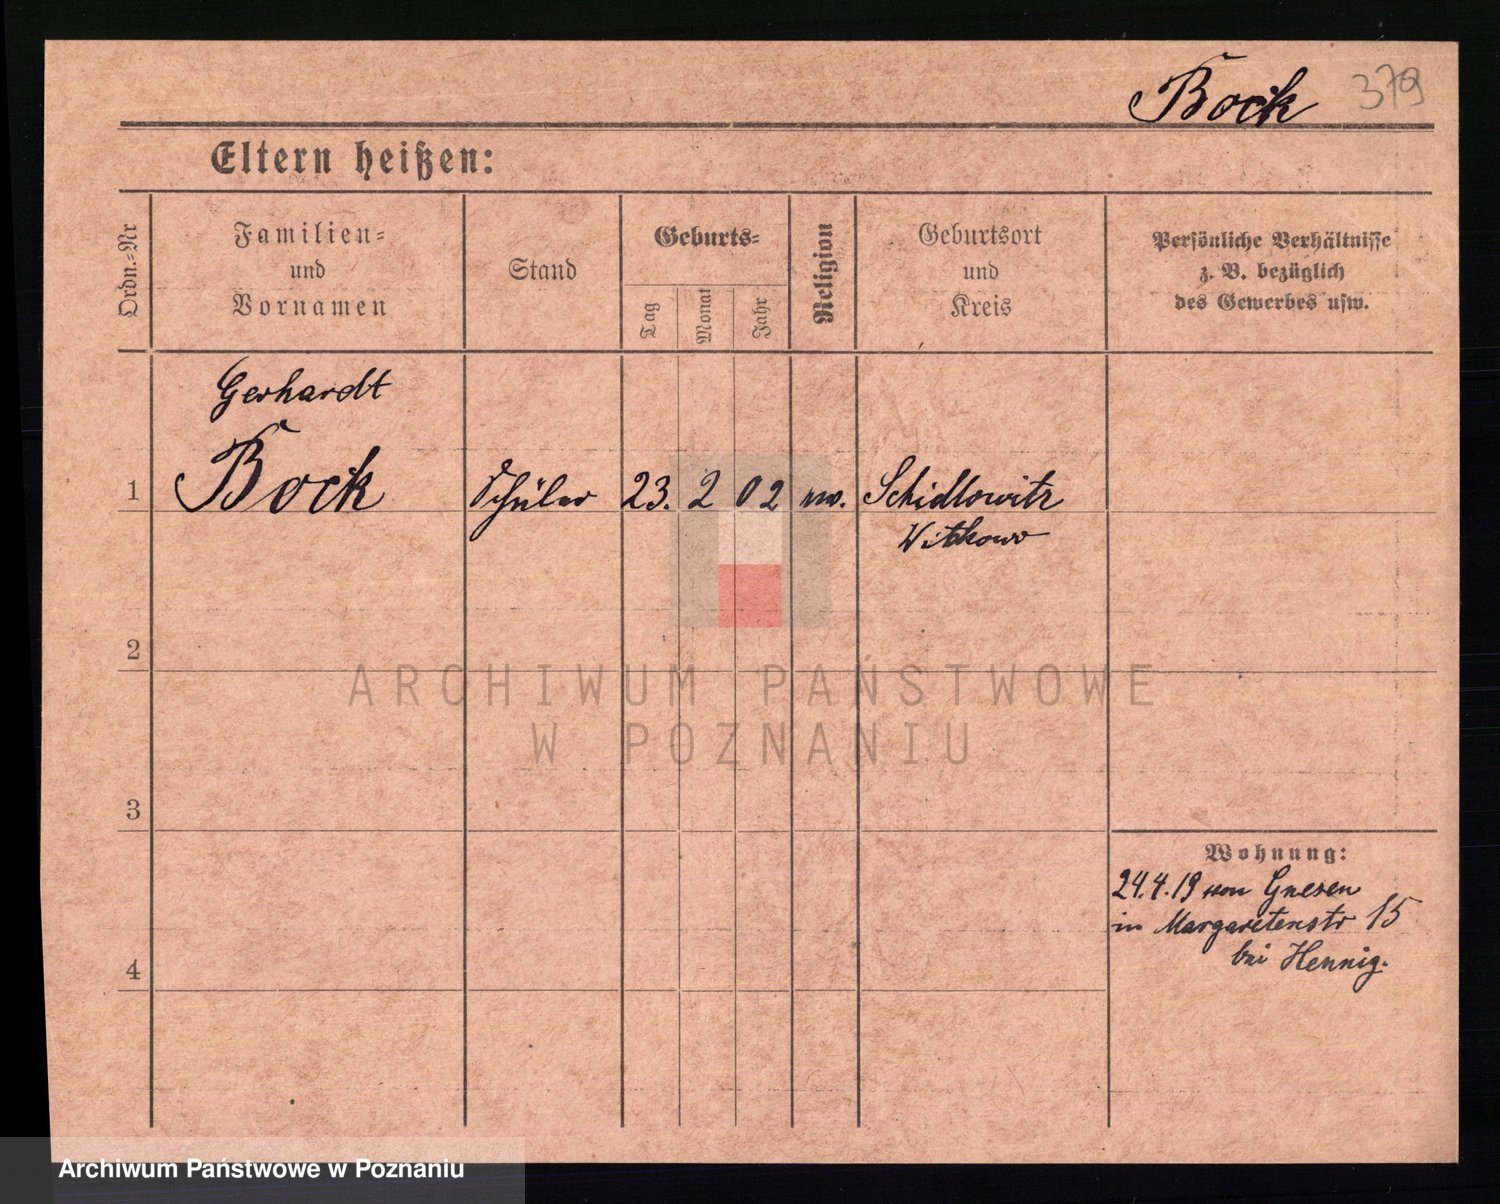 Bock 379
Eltern heißen:
Ordn.-Nr
Familien-
und
Vornamen
Stand
Geburts-
Tag
Monat
Jahr
Religion
Geburtsort
und
Kreis
Persönliche Verhältnisse
z. B. bezüglich
des Gewerbes usw.
Gerhardt
1 Bock Schüler 23. 2 02 Schidlowitz
Witkowo
2
ARCHIWUM PAŃSTWOWE
W POZNANIU
3
Wohnung:
24.4.19 von Gnesen
in Margaretenstr 15
bei Hennig.
4
Archiwum Państwowe w Poznaniu